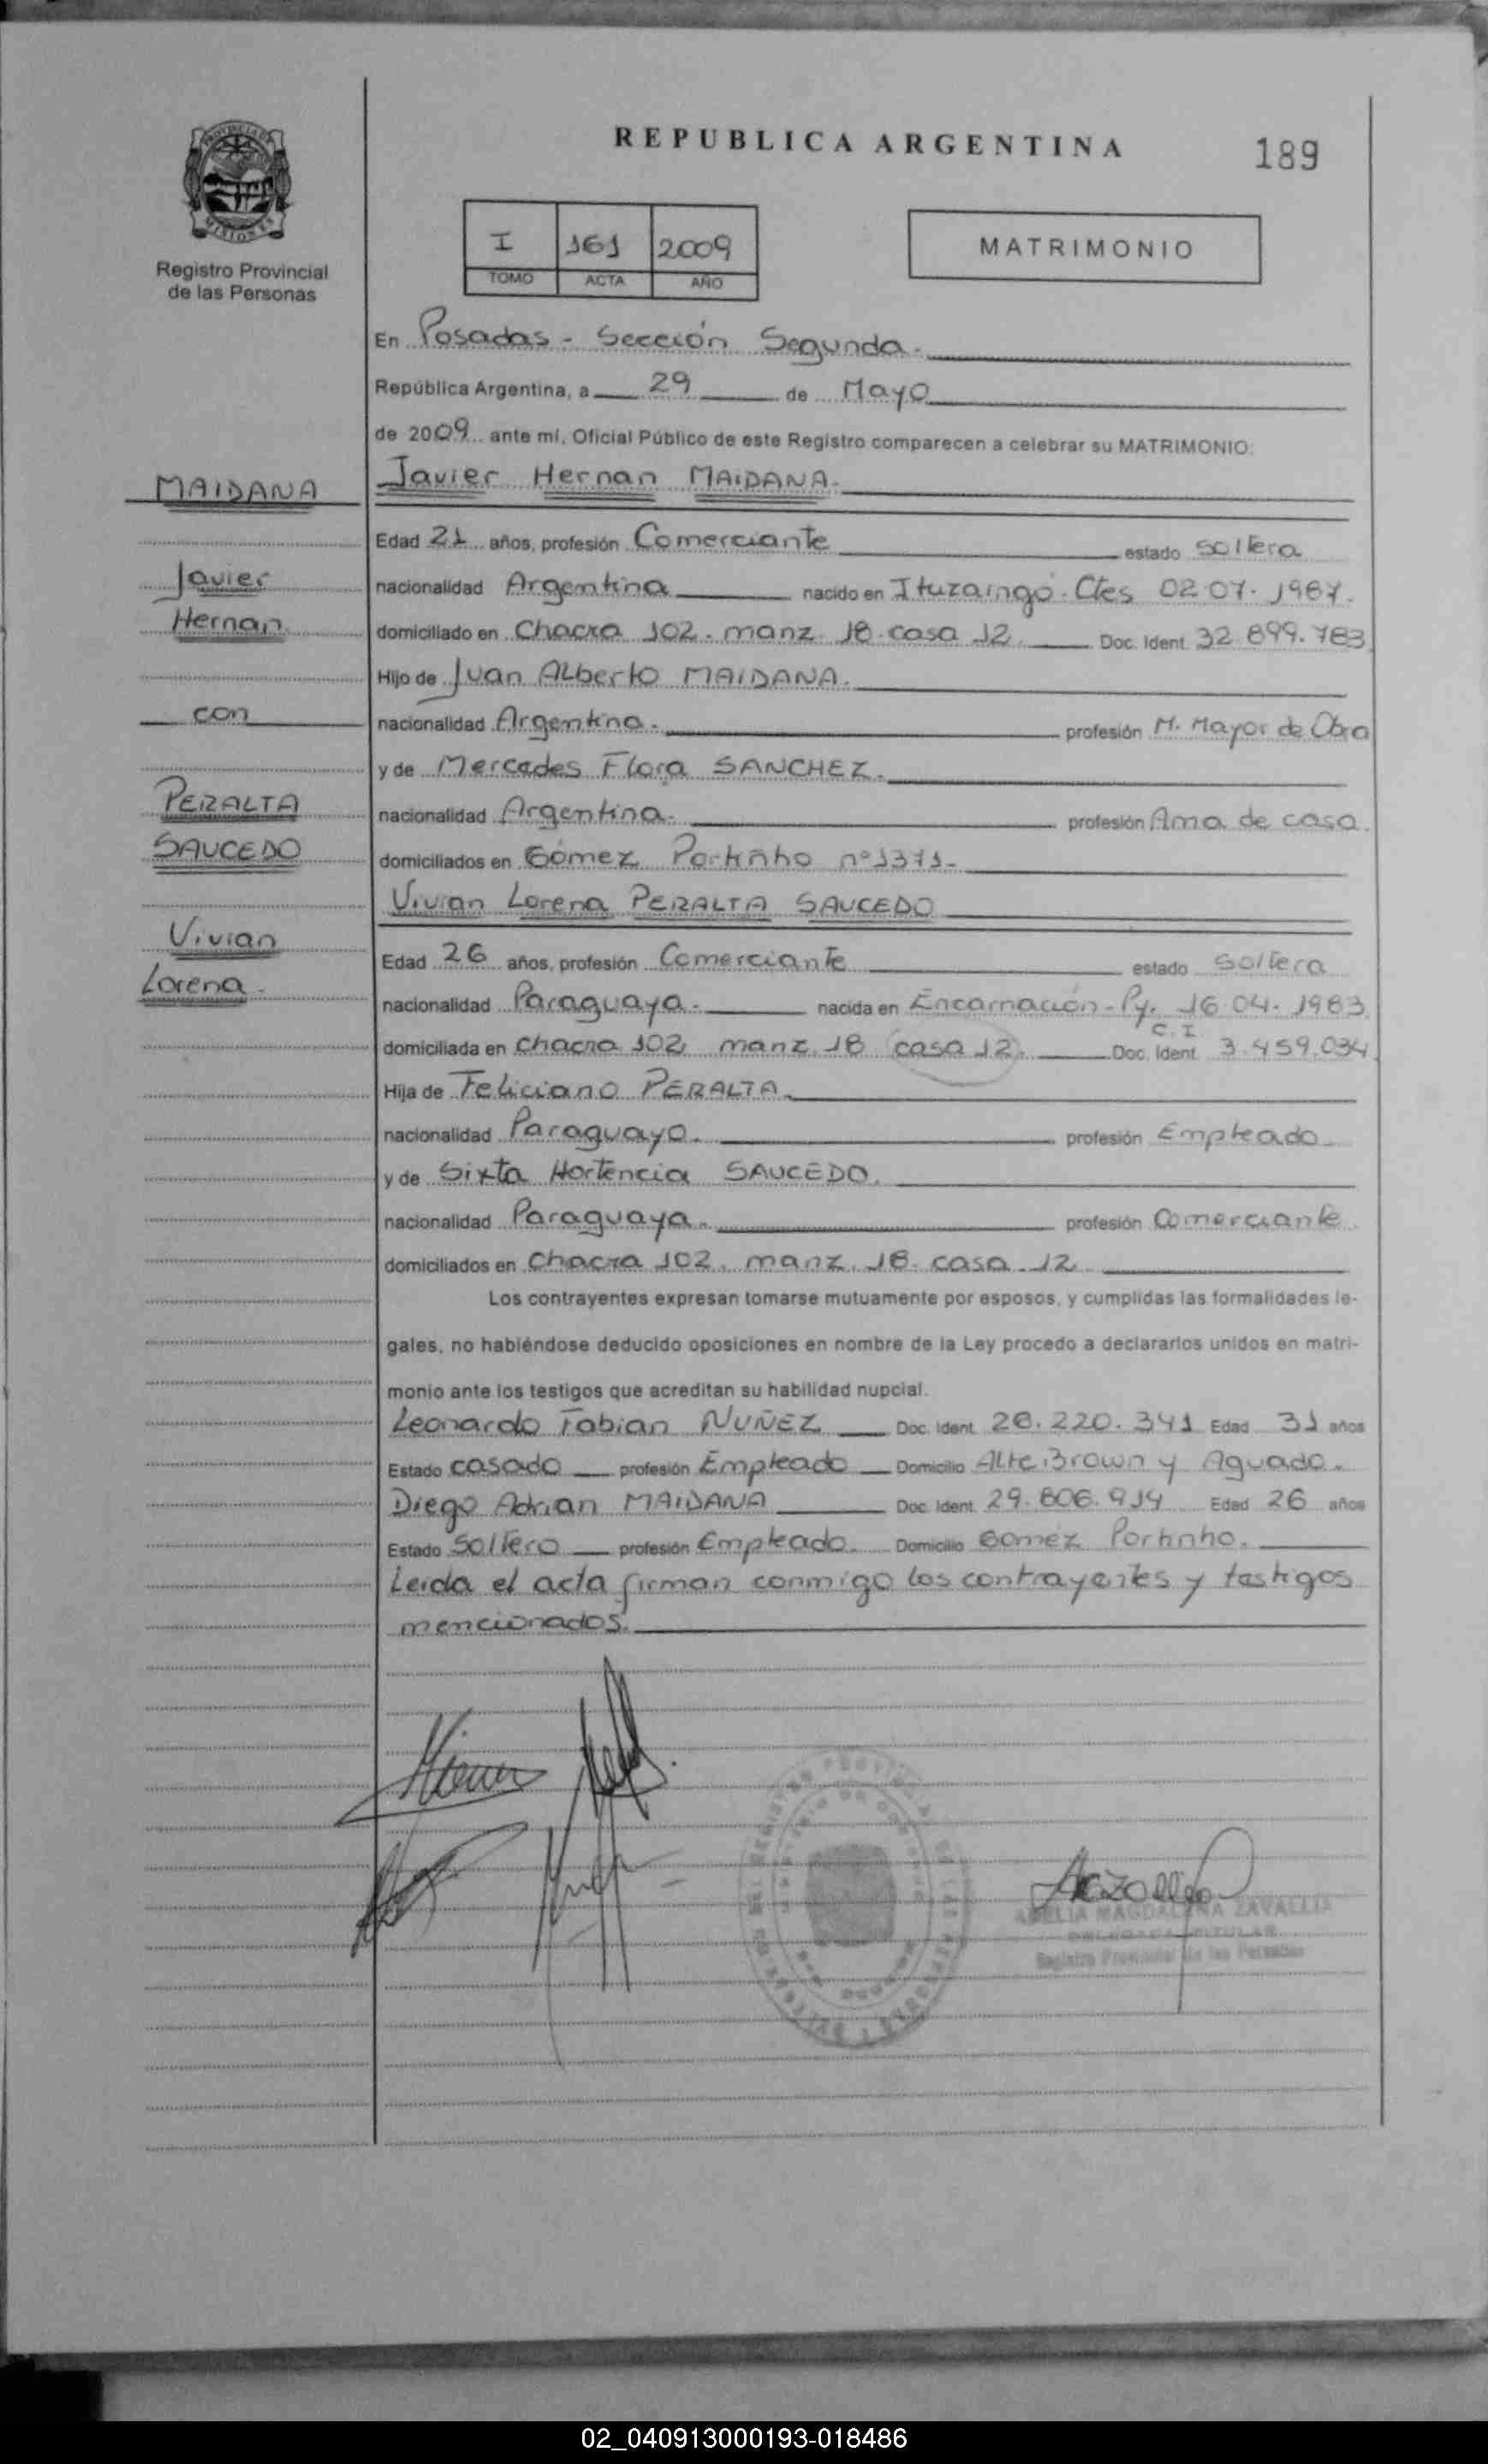 REPUBLICA ARGENTINA
189
PROVINCIA DE
MISIONES
Registro Provincial
de las Personas
I 161 2009
TOMO ACTA AÑO
MATRIMONIO
En Posadas - Sección Segunda.
República Argentina, a 29 de Mayo
de 2009 ante mí, Oficial Público de este Registro comparecen a celebrar su MATRIMONIO:
MAIDANA
Javier Hernan MAIDANA.
Edad 21 años, profesión Comerciante estado soltera
Javier
nacionalidad Argentina nacido en Ituzaingó. Ctes 02.07.1987.
Hernan
domiciliado en Chacra 102. manz. 18. casa 12. Doc. Ident. 32.899.783
Hijo de Juan Alberto MAIDANA.
con
nacionalidad Argentina. profesión M. Mayor de Obra
y de Mercedes Flora SANCHEZ.
PERALTA
nacionalidad Argentina. profesión Ama de casa.
SAUCEDO
domiciliados en Gómez Portinho nº 1371.
Vivian Lorena PERALTA SAUCEDO
Vivian
Edad 26 años, profesión Comerciante estado soltera
Lorena.
nacionalidad Paraguaya. nacida en Encarnación - Py. 16.04.1983
C.I
domiciliada en chacra 102 manz. 18 casa 12. Doc. Ident. 3.459.034
Hija de Feliciano PERALTA.
nacionalidad Paraguayo. profesión Empleado
y de Sixta Hortencia SAUCEDO.
nacionalidad Paraguaya. profesión Comerciante
domiciliados en Chacra 102. manz. 18. casa. 12
Los contrayentes expresan tomarse mutuamente por esposos, y cumplidas las formalidades le-
gales, no habiéndose deducido oposiciones en nombre de la Ley procedo a declararlos unidos en matri-
monio ante los testigos que acreditan su habilidad nupcial.
Leonardo Fabian NUÑEZ Doc. Ident. 26.220.341 Edad 31 años
Estado casado profesión Empleado Domicilio Alte. Brown y Aguado.
Diego Adrian MAIDANA Doc. Ident. 29.806.914 Edad 26 años
Estado Soltero profesión Empleado. Domicilio Gomez Portinho.
Leida el acta firman conmigo los contrayentes y testigos
mencionados.
AMELIA MAGDALENA ZAVALLIA
DELEGADA TITULAR
Registro Provincial de las Personas
02_040913000193-018486